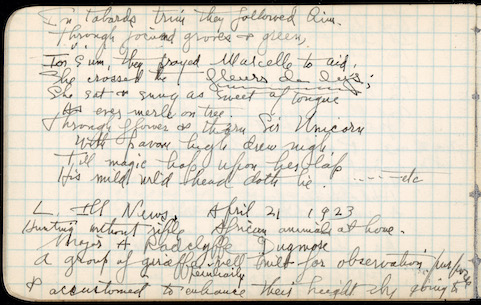 In tabards trim they followed him.
Through joined groves & green,
For sum, they prayed Marcelle to aid,
She crossed the "fleurs de lys";
She sat & sung as sweet a tongue
As ever merle on tree.
Through flower & thorn Sir Unicorn
With pavon high drew nigh
Till magic hap upon her lap
His mild wild head doth lie. ---- etc
L. Ill News. April 21 1923
Hunting without rifle African animals at home.
Major A Radclyffe Dugmore
A group of giraffes well built for observation purpose
peculiarly
& accustomed to enhance their height by going